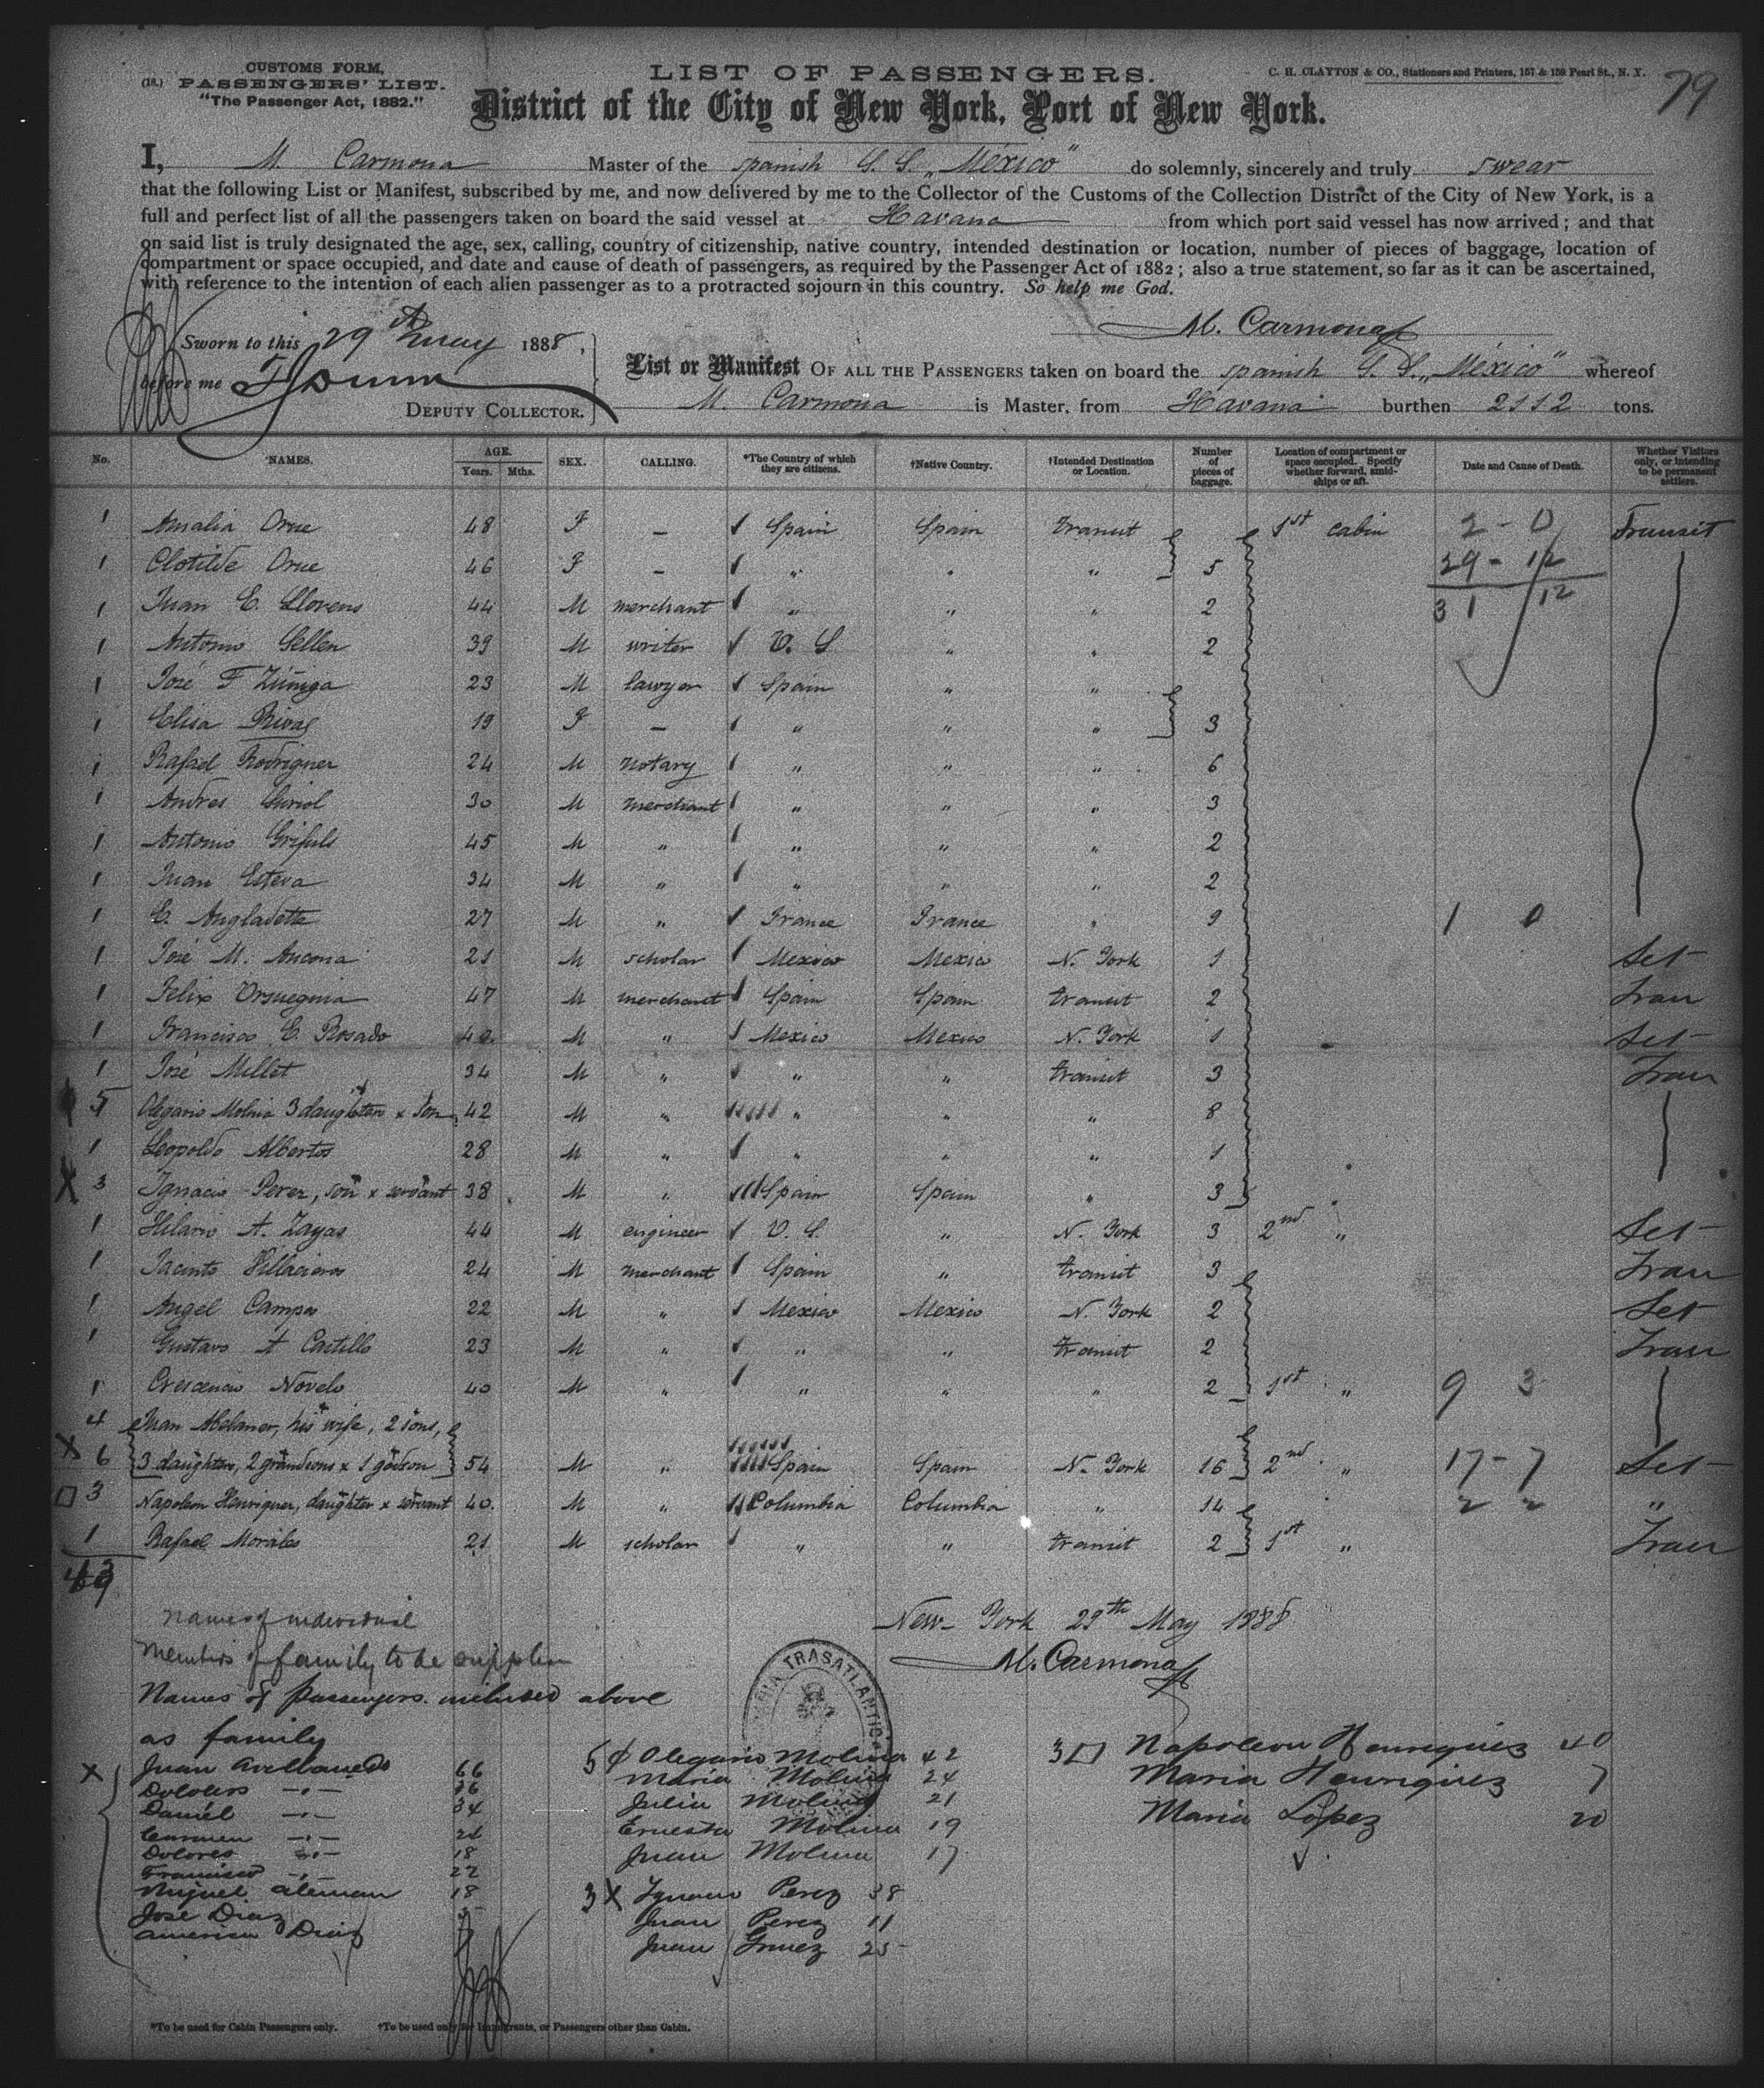 CUSTOMS FORM,
(18.) PASSENGERS' LIST.
"The Passenger Act, 1882."
LIST OF PASSENGERS.
C. H. CLAYTON & CO., Stationers and Printers, 157 & 159 Pearl St., N. Y.
79
District of the City of New York, Port of New York.
I, M. Carmona Master of the spanish S. S. „México" do solemnly, sincerely and truly swear
that the following List or Manifest, subscribed by me, and now delivered by me to the Collector of the Customs of the Collection District of the City of New York, is a
full and perfect list of all the passengers taken on board the said vessel at Havana from which port said vessel has now arrived; and that
on said list is truly designated the age, sex, calling, country of citizenship, native country, intended destination or location, number of pieces of baggage, location of
compartment or space occupied, and date and cause of death of passengers, as required by the Passenger Act of 1882; also a true statement, so far as it can be ascertained,
with reference to the intention of each alien passenger as to a protracted sojourn in this country. So help me God.
M. Carmona
Sworn to this 29th May 1888,
before me
DEPUTY COLLECTOR.
List or Manifest OF ALL THE PASSENGERS taken on board the spanish S. S. „México" whereof
M. Carmona is Master, from Havana burthen 2112 tons.
No. NAMES. AGE. Years. Mths. SEX. CALLING. *The Country of which they are citizens. †Native Country. †Intended Destination or Location. Number of pieces of baggage. Location of compartment or space occupied. Specify whether forward, amidships or aft. Date and Cause of Death. Whether Visitors only, or intending to be permanent settlers.
1 Amalia Orue 48 F — Spain Spain transit 1st cabin 2 - 0 Transit
1 Clotilde Orue 46 F — „ „ „ 5 29 - 12
1 Juan E. Llovens 44 M merchant „ „ „ 2 31 12
1 Antonio Sellen 39 M writer U. S „ „ 2
1 José F Zúñiga 23 M lawyer Spain „ „
1 Elisa Rivas 19 F — „ „ „ 3
1 Rafael Rodriguez 24 M notary „ „ „ 6
1 Andres 30 M merchant „ „ „ 3
1 Antonio Grifuls 45 M „ „ „ „ 2
1 Juan Esteva 34 M „ „ „ „ 2
1 E. Angladette 27 M „ France France „ 9 1 0
1 José M. Ancona 21 M scholar Mexico Mexico N. York 1 Set
1 Felix 47 M merchant Spain Spain transit 2 Tran
1 Francisco E. Rosado 42 M „ Mexico Mexico N. York 1 Set
1 José Millet 34 M „ „ „ transit 3 Tran
5 Olegario Molina 3 daughters x son 42 M „ „ „ „ 8
1 Leopoldo Albertos 28 M „ „ „ „ 1
X 3 Ignacio Perez, son x servant 38 M „ Spain Spain „ 3
1 Hilario A. Zayas 44 M engineer U. S. „ N. York 3 2nd „ Set
1 Jacinto Villacieros 24 M merchant Spain „ transit 3 Tran
1 Angel Campos 22 M „ Mexico Mexico N. York 2 Set
1 Gustavo A Castillo 23 M „ „ „ transit 2 Tran
1 Crescencio Novelo 40 M „ „ „ „ 2 1st „ 9 3
4 Juan Abelaner, his wife, 2 sons,
X 6 3 daughters, 2 grandsons x 1 godson 54 M „ Spain Spain N. York 16 2nd „ 17 - 7 Set
3 Napoleon Henriquez, daughter x servant 40. M „ Columbia Columbia „ 14 2 2 „
1 Rafael Morales 21 M scholar „ „ transit 2 1st „ Tran
New-York 29th May 1888
names of individual
M. Carmona
members of family to be supplied
Names of passengers included above
as family
TRASATLANTICA
X Juan Avellaneda 66
Dolores —„— 36
Daniel —„— 34
Carmen —„— 24
Dolores —„— 18
Francisco —„— 22
Miguel Aleman 18
José Diaz 5
America Diaz
5 Olegario Molina 42
Maria Molina 24
Julia Molina 21
Ernesta Molina 19
Juan Molina 17
3 X Ignacio Perez 38
Juan Perez 11
Juan Gomez 25
3 Napoleon Henriquez 40
Maria Henriquez 7
Maria Lopez 20
*To be used for Cabin Passengers only. †To be used only for Immigrants, or Passengers other than Cabin.